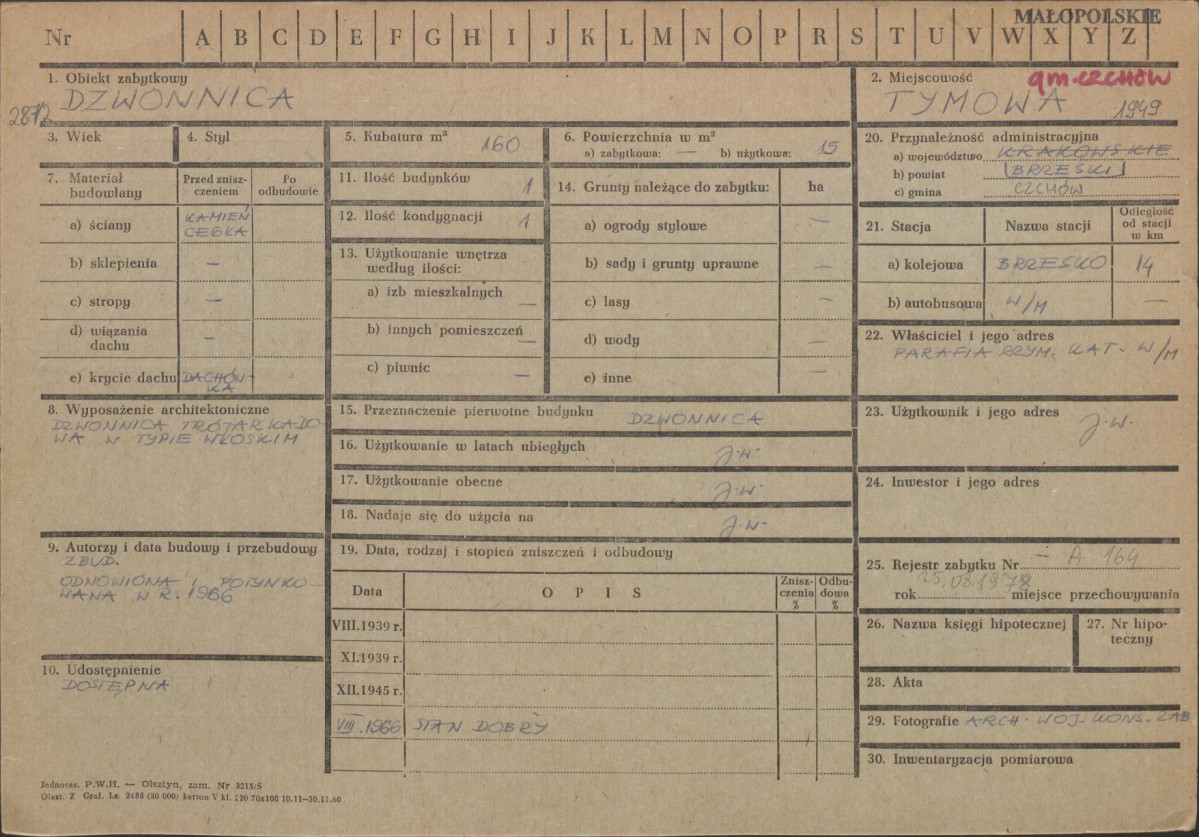 MAŁOPOLSKIE
Nr A B C D E F G H I J K L M N O P R S T U V W X Y Z
1. Obiekt zabytkowy
DZWONNICA
2. Miejscowość gm. CZCHÓW
TYMOWA 1949
3. Wiek
4. Styl
5. Kubatura m³ 160
6. Powierzchnia w m²
a) zabytkowa: — b) użytkowa: 15
7. Materiał budowlany
Przed zniszczeniem
Po odbudowie
a) ściany KAMIEŃ CEGŁA
b) sklepienia —
c) stropy —
d) wiązania dachu —
e) krycie dachu DACHÓWKA
8. Wyposażenie architektoniczne
DZWONNICA TRÓJARKADO-
WA W TYPIE WŁOSKIM
9. Autorzy i data budowy i przebudowy
ZBUD.
ODNOWIONA I POTYNKO-
WANA W R. 1966
10. Udostępnienie
DOSTĘPNA
11. Ilość budynków 1
12. Ilość kondygnacji 1
13. Użytkowanie wnętrza
według ilości:
a) izb mieszkalnych —
b) innych pomieszczeń —
c) piwnic —
14. Grunty należące do zabytku: ha
a) ogrody stylowe —
b) sady i grunty uprawne —
c) lasy —
d) wody —
e) inne —
15. Przeznaczenie pierwotne budynku DZWONNICA
16. Użytkowanie w latach ubiegłych J.W.
17. Użytkowanie obecne J.W.
18. Nadaje się do użycia na J.W.
19. Data, rodzaj i stopień zniszczeń i odbudowy
Data O P I S Zniszczenia % Odbudowa %
VIII.1939 r.
XI.1939 r.
XII.1945 r.
VIII.1966 STAN DOBRY
20. Przynależność administracyjna
a) województwo KRAKOWSKIE
b) powiat BRZESKI
c) gmina CZCHÓW
21. Stacja Nazwa stacji Odległość od stacji w km
a) kolejowa BRZESKO 14
b) autobusowa W/M —
22. Właściciel i jego adres
PARAFIA RZYM. KAT. W/M
23. Użytkownik i jego adres
J.W.
24. Inwestor i jego adres
25. Rejestr zabytku Nr — A-164
rok 25.08.1978 miejsce przechowywania
26. Nazwa księgi hipotecznej
27. Nr hipoteczny
28. Akta
29. Fotografie ARCH. WOJ. KONS. ZAB
30. Inwentaryzacja pomiarowa
Jednoraz. P.W.H. — Olsztyn, zam. Nr 3215/S
Olszt. Z Graf. Lz. 2485 (30 000) karton V kl. 220 70x100 10.11—30.11.60